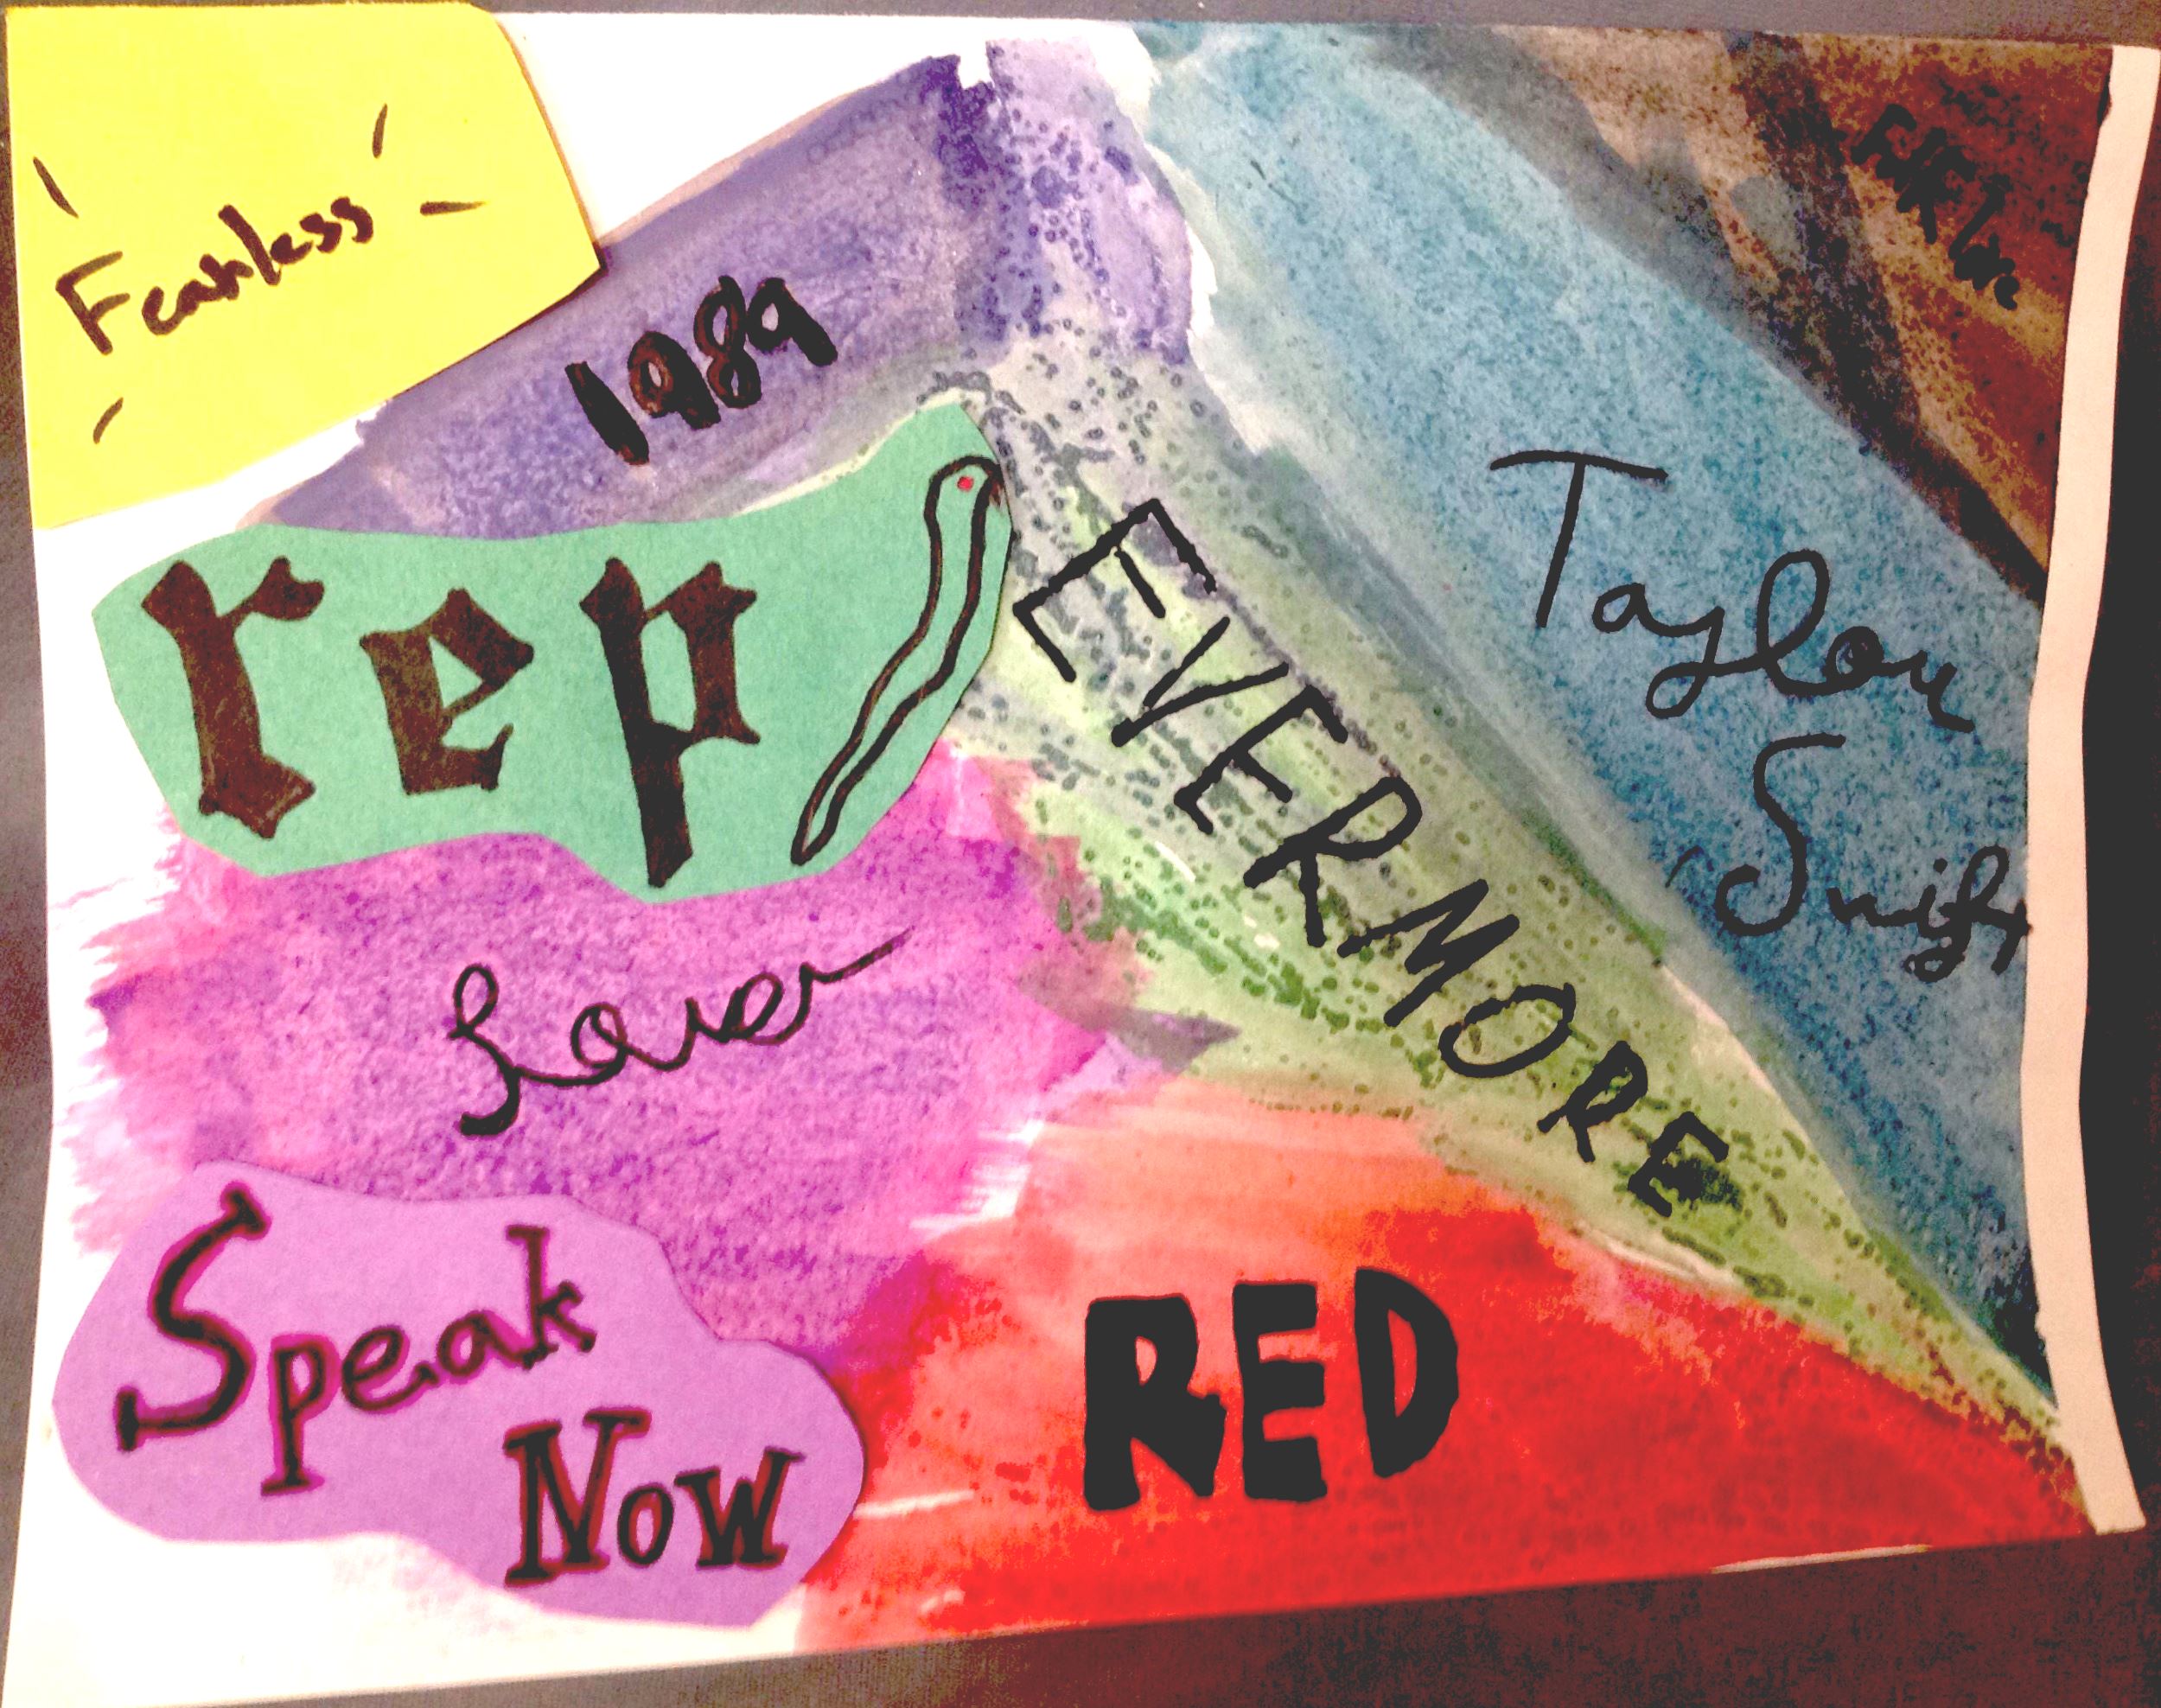 Fearless
1989
rep
EVERMORE
Taylor
Swift
Lover
Speak
Now
RED